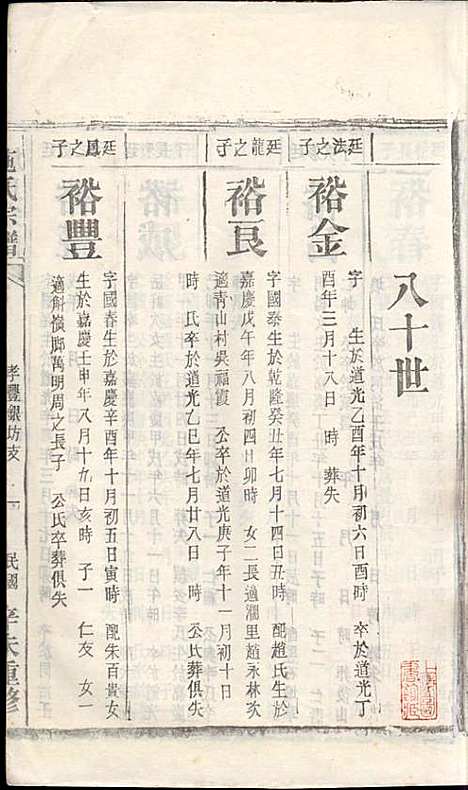 八十世
廷法之子
裕金
字　生於道光乙酉年十月初六日酉時　卒於道光丁
酉年三月十八日　時　葬失
廷龍之子
裕良
字國泰生於乾隆癸丑年七月十四日丑時　配趙氏生於
嘉慶戊午年八月初四日卯時　女二長適澗里趙永林次
適青山村吳福霞　公卒於道光庚子年十一月初十日
時　氏卒於道光乙巳年七月廿八日　時　公氏葬俱失
廷鳳之子
裕豐
字國春生於嘉慶辛酉年十月初五日寅時　配朱百貴女
生於嘉慶壬申年八月十九日亥時　子一　仁友　女一
適斛嶺廊萬明周之長子　公氏卒葬俱失
氏宗譜
孝豐銀坊支
民國辛未重修